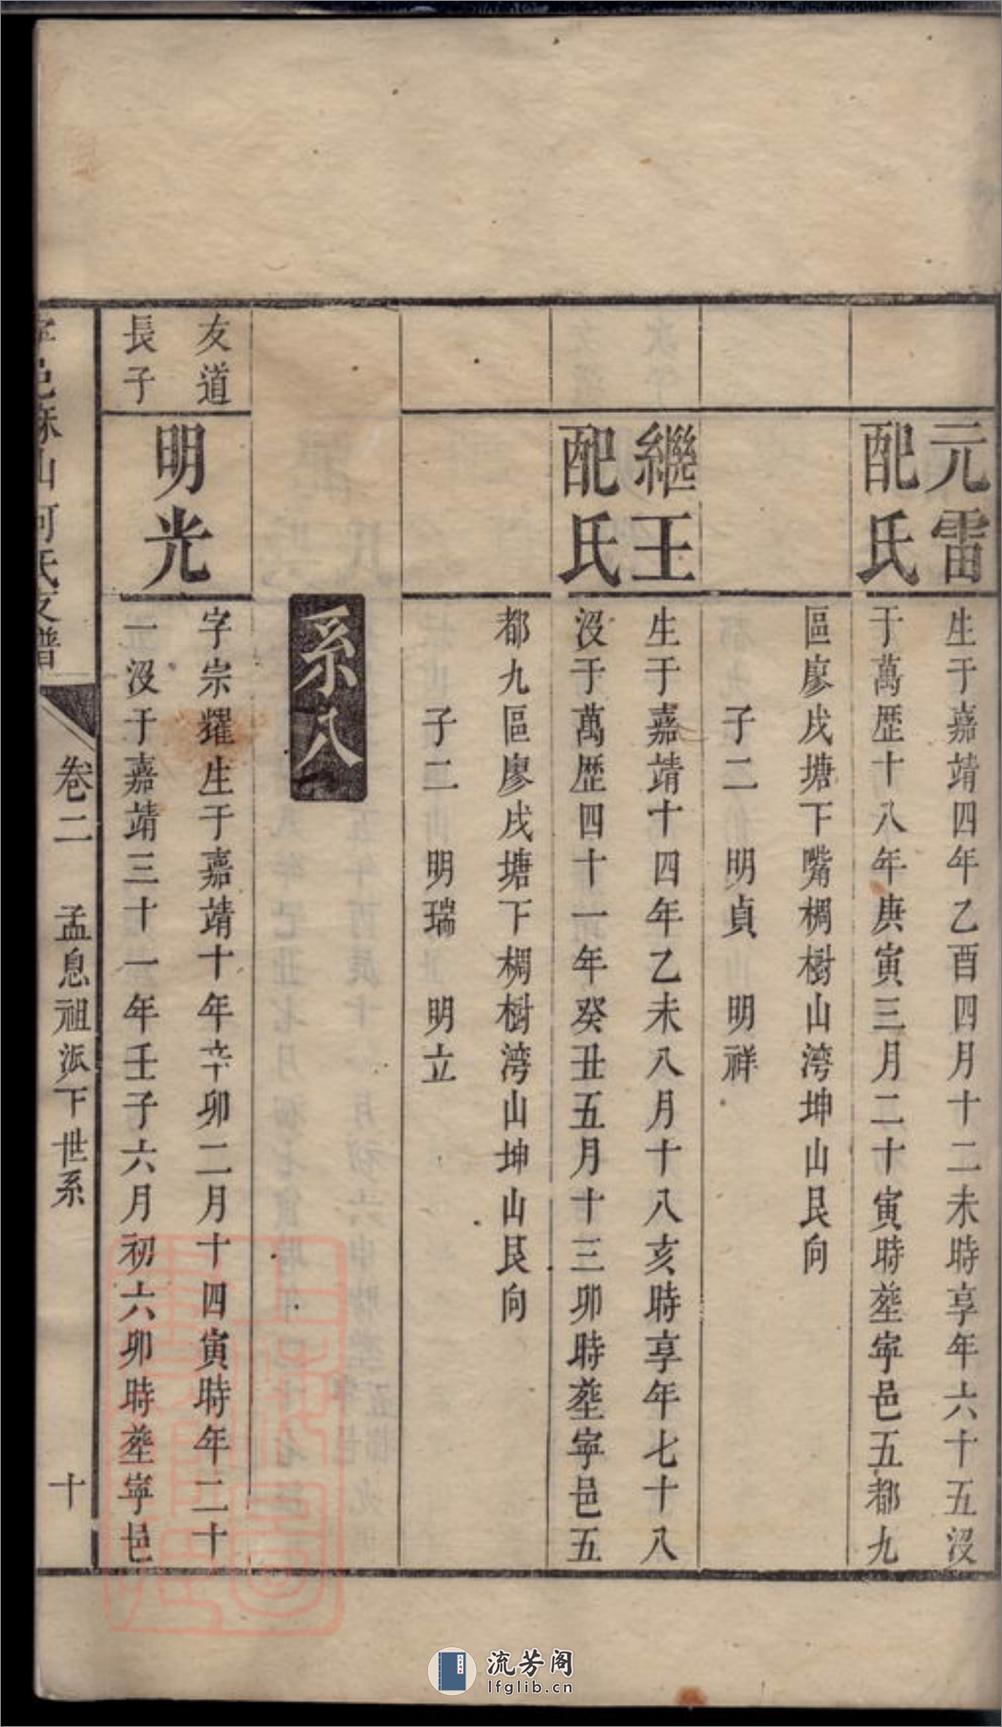 元配
雷氏
生于嘉靖四年乙酉四月十二未時享年六十五沒
于萬歴十八年庚寅三月二十寅時塟寧邑五都九
區廖戍塘下嘴椆樹山湾坤山艮向
子二　明貞　明祥
繼配
王氏
生于嘉靖十四年乙未八月十八亥時享年七十八
沒于萬歴四十一年癸丑五月十三卯時塟寧邑五
都九區廖戍塘下椆樹湾山坤山艮向
子二　明瑞　明立
系八
友道
長子
明光
字宗耀生于嘉靖十年辛卯二月十四寅時年二十
一沒于嘉靖三十一年壬子六月初六卯時塟寧邑
邑麻山何氏支譜
卷二　孟息祖派下世系　十
流芳阁
lfglib.cn